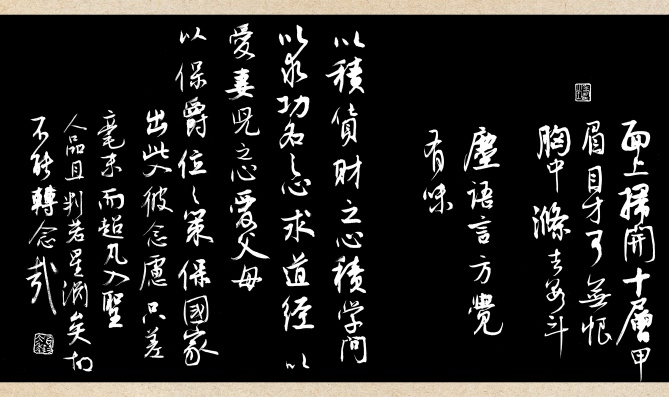 面上掃開十層甲
眉目才可無恨
胸中滌去數斗
塵語言方覺
有味
以積貨財之心積学問
以求功名之心求道經以
愛妻児之心愛父母
以保爵位之策保國家
出此入彼念慮只差
毫末而超凡入聖
人品且判若星淵矣胡
不能轉念哉